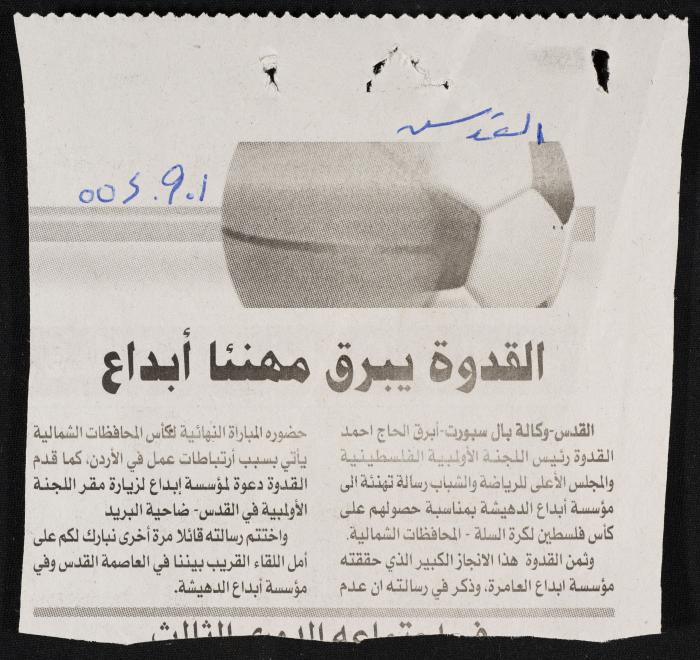 القدس
1.9.2005
القدوة يبرق مهنئا أبداع
القدس-وكالة بال سبورت-أبرق الحاج احمد
القدوة رئيس اللجنة الأولمبية الفلسطينية
والمجلس الأعلى للرياضة والشباب رسالة تهنئة الى
مؤسسة أبداع الدهيشة بمناسبة حصولهم على
كأس فلسطين لكرة السلة - المحافظات الشمالية.
وثمن القدوة هذا الانجاز الكبير الذي حققته
مؤسسة ابداع العامرة، وذكر في رسالته ان عدم
حضوره المباراة النهائية لكأس المحافظات الشمالية
يأتي بسبب أرتباطات عمل في الأردن، كما قدم
القدوة دعوة لمؤسسة إبداع لزيارة مقر اللجنة
الأولبية في القدس- ضاحية البريد
واختتم رسالته قائلا مرة أخرى نبارك لكم على
أمل اللقاء القريب بيننا في العاصمة القدس وفي
مؤسسة أبداع الدهيشة.